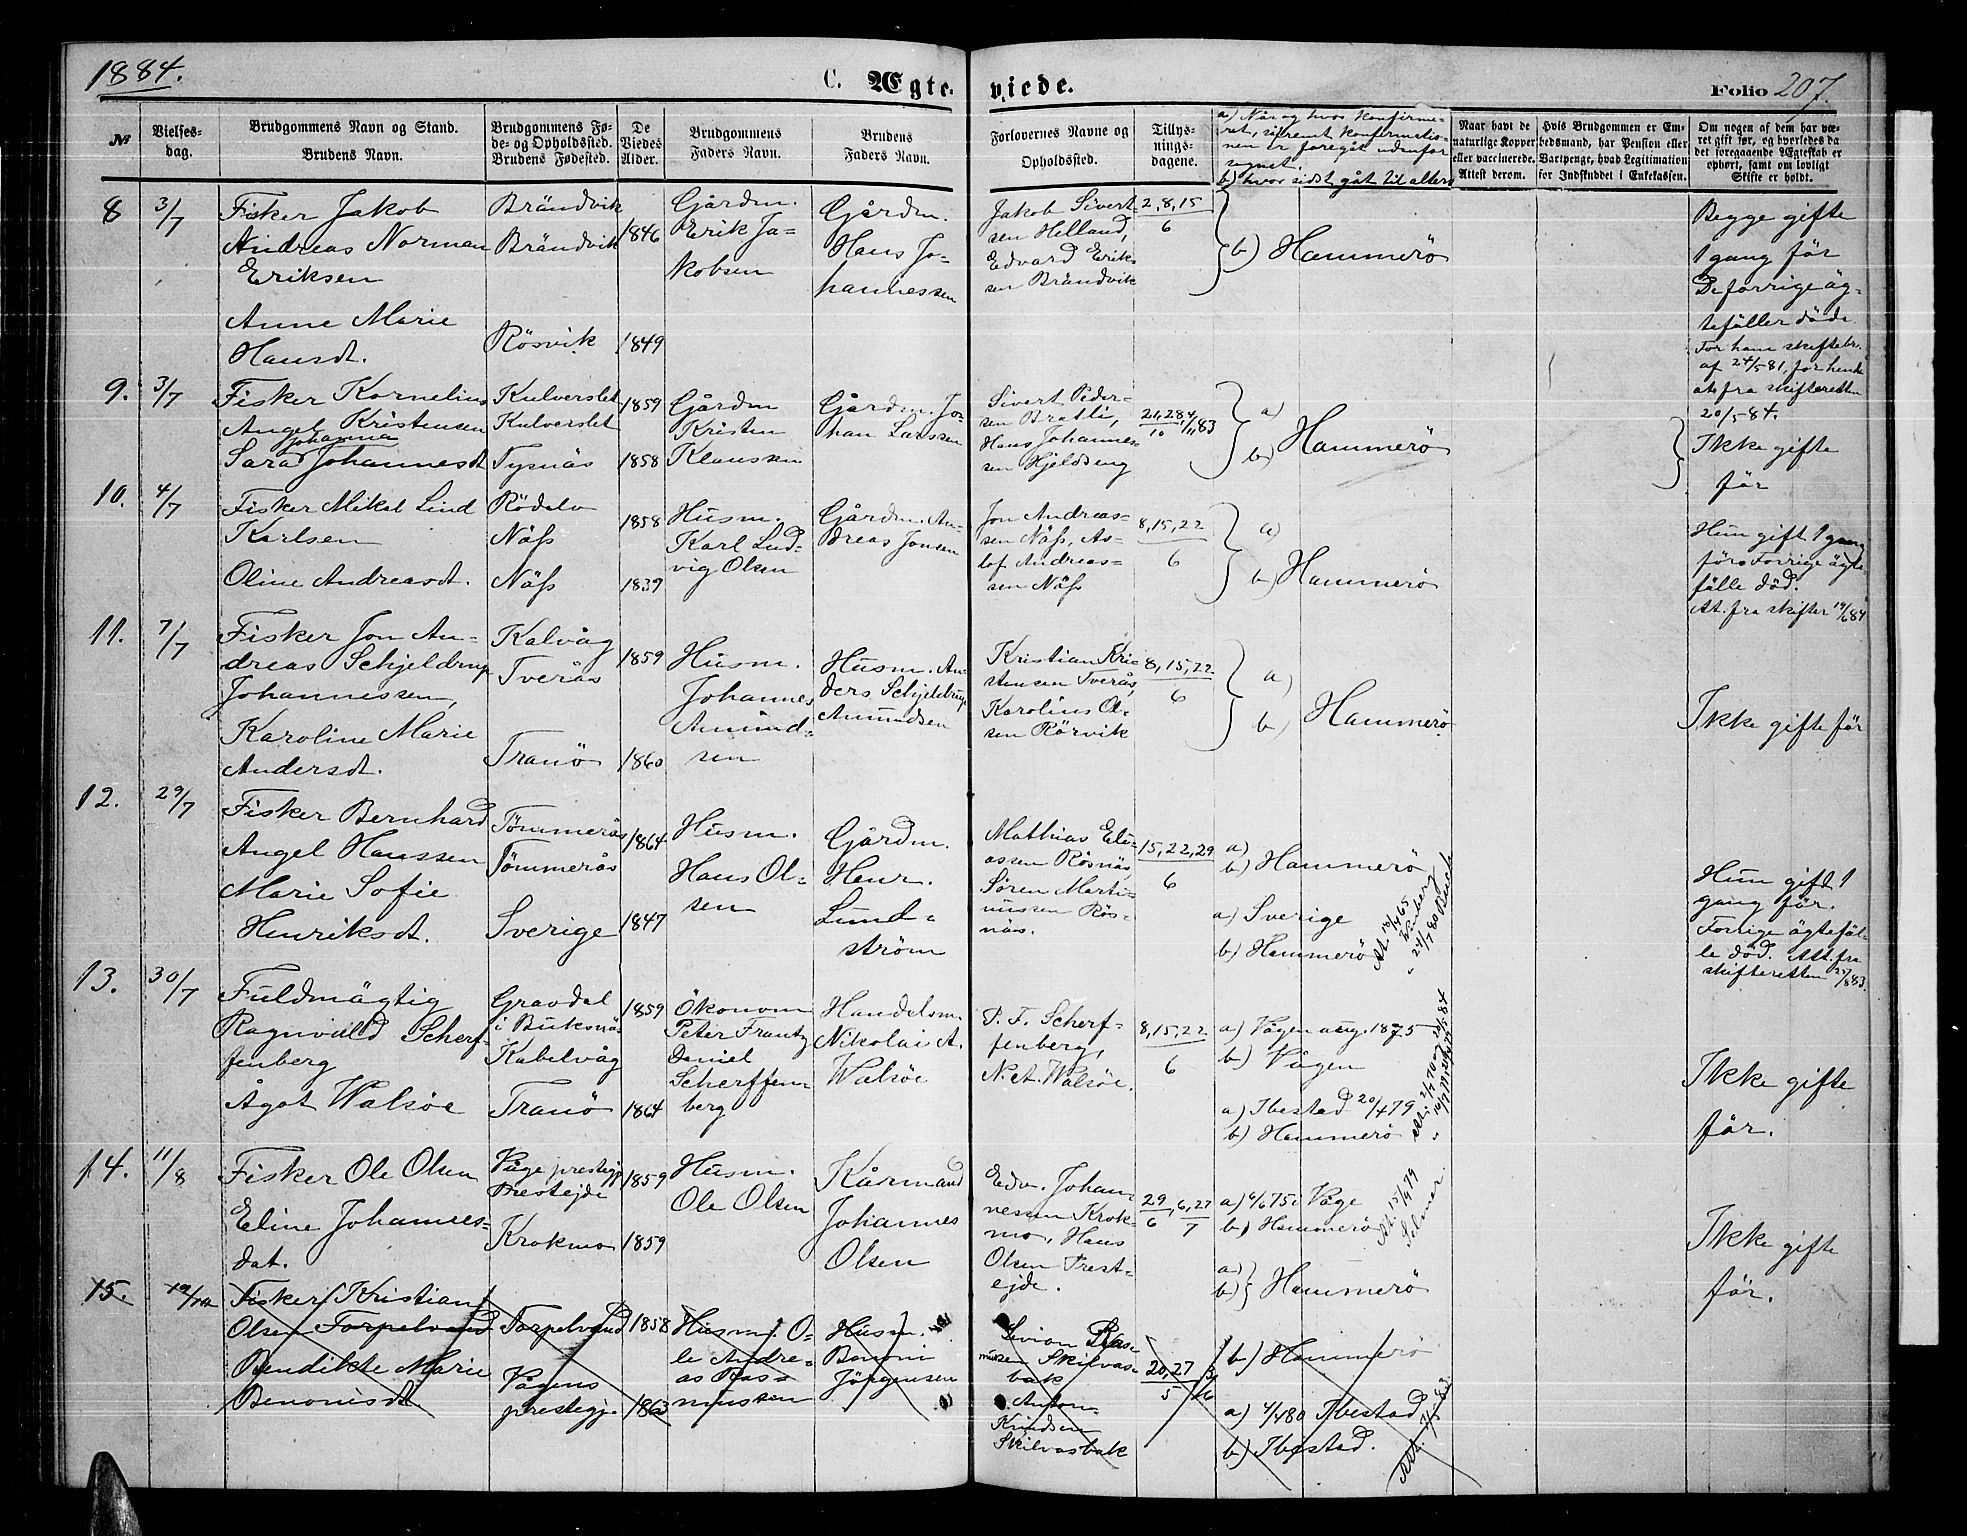 1884.
C. Ægte-
viede.
Folio 207.
№
Vielses-
dag.
Brudgommens Navn og Stand.
Brudens Navn.
Brudgommens Fø-
de- og Opholdssted.
Brudens Fødested.
De
Viedes
Alder.
Brudgommens
Faders Navn.
Brudens
Faders Navn.
Forlovernes Navne og
Opholdssted.
Tillys-
nings-
dagene.
a) Når og hvor konfirme-
ret, såfremt konfirmatio-
nen er foregåt udenfor
sognet.
b) hvor sidst gåt til alters
Naar havt de
naturlige Kopper
eller vaccinerede.
Attest derom.
Hvis Brudgommen er Em-
bedsmand, har Pension eller
Vartpenge, hvad Legitimation
for Indskuddet i Enkekassen.
Om nogen af dem har væ-
ret gift før, og hvorledes da
det foregaaende Ægteskab er
ophørt, samt om lovligt
Skifte er holdt.
8
3/7
Fisker Jakob
Andreas Norman
Eriksen
Anne Marie
Hansdt.
Brändvik
Brändvik
Rösvik
1846
1849
Gårdm.
Erik Ja-
kobsen
Gårdm.
Hans Jo-
hannessen
Jakob Sivert-
sen Helland,
Edvard Erik-
sen Brändvik
2,8,15
6
b) Hammerö
Begge gifte
1 gang för
De forrige äg-
tefäller döde
For ham skiftebr.
af 24/5 81, for hende
at. fra skifteretten
20/5 84.
9.
3/7
Fisker Kornelius
Angel Kristensen
Johanna
Sara Johannesdt
Kulverslet
Kulverslet
Tysnäs
1859
1858
Gårdm
Kristen
Klaussen
Gårdm. Jo-
han Larssen
Sivert Peder-
sen Bratli,
Hans Johannes-
sen Hjeldseng
21,28 4/11 83
10
a)
b) Hammerö
Ikke gifte
för
10.
4/7
Fisker Mikal Lind
Karlsen
Oline Andreasdt.
Rödelv
Näss
Näss
1858
1839
Husm.
Karl Lud-
vig Olsen
Gårdm. An-
dreas Jonsen
Jon Andreas-
sen Näss, As-
lof Andreas-
sen Näss
8,15,22
6
a)
b) Hammerö
Hun gift 1 gang
för. Forrige ägte-
fälle död.
At. fra skifter 14/6 84
11.
7/7
Fisker Jon An-
dreas Schjeldrup
Johannessen,
Karoline Marie
Andersdt.
Kalvåg
Tverås
Tranö
1859
1860
Husm.
Johannes
Amund-
sen
Husm. An-
ders Schjeldrup
Amundsen
Kristian Kri-
stensen Tverås,
Karolius Ol-
sen Rörvik
8,15,22
6
a)
b) Hammerö
Ikke gifte för
12.
29/7
Fisker Bernhard
Angel Hanssen
Marie Sofie
Henriksdt.
Tömmerås
Tömmerås
Sverige
1864
1847
Husm.
Hans Ol-
sen
Gårdm.
Henr.
Lund-
ström
Mathias Eli-
assen Rösnäs,
Sören Marti-
nussen Rös-
näs.
15,22,29
6
a)
b) Hammerö
a) Sverige
b) Hammerö
Hun gift 1
gang för.
Forrige ägtefäl-
le död. Att. fra
skifteretten 25/8 83.
13.
30/7
Fuldmägtig
Ragnvald Scherf-
fenberg
Ågot Walsöe
Gravdal
i Buksnäs
Kabelvåg
Tranö
1859
1864
Ökonom
Peter Frantz
Daniel
Scherffen-
berg
Handelsm.
Nikolai A.
Walsöe
P. F. Scherf-
fenberg,
N. A. Walsöe.
8,15,22
6
a) Vågen aug. 1875
b) Vågen
a) Ibestad 20/4 79
b) Hammerö
Ikke gifte
för.
14.
11/8
Fisker Ole Olsen
Eline Johannes-
dat.
Våge prestegj
Prestejde
Krokmo
1859
1859
Husm.
Ole Olsen
Kårmand
Johannes
Olsen
Edv. Johan-
nessen Krok-
mo, Hans
Olsen Prest-
ejde.
29/6, 6,27/7
a) 4/6 75 i Våge
b) Hammerö
At. 15/9 79
Selmer
a)
b) Hammerö
Ikke gifte
för.
15.
Fisker Kristian
Olsen Torpelvand
Bendikte Marie
Benonisdt
Torpelvand
Vågens
prestegj.
1858
1863
Husm. O-
le Andre-
as Ras-
mussen
Husm.
Benoni
Jörgensen
Sivion Ras-
mussen Skilvas-
bak
Anton
Knudsen
Skilvasbak
20,27
5
b) Hammerö
a) 4/4 80 Ibestad
b) Ibestad.